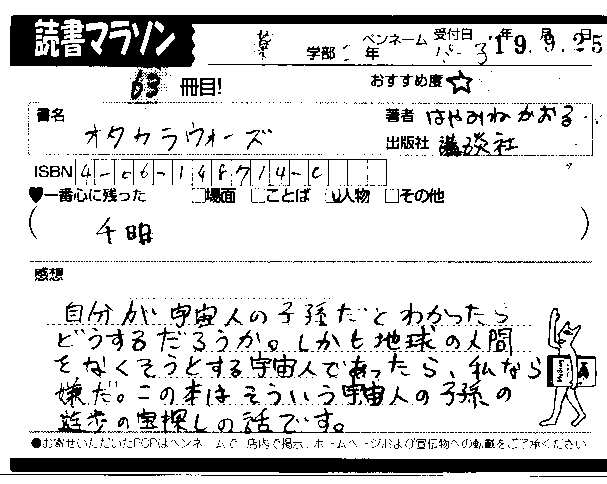 読書マラソン 薬 学部 2 年 ペンネーム ぱーる 受付日 '19年 9.月 25日
63 冊目! おすすめ度☆
書名 著者 はやみねかおる
オタカラウォーズ 出版社 講談社
ISBN 4-06-148714-0
♥一番心に残った □場面 □ことば ☑人物 □その他
(千明)
感想
自分が宇宙人の子孫だとわかったら
どうするだろうか。しかも地球の人間
をなくそうとする宇宙人であったら、私なら
嫌だ。この本はそういう宇宙人の子孫の
遊歩の宝探しの話です。
●お寄せいただいたPOPはペンネームで、店内で掲示、ホームページおよび宣伝物への転載をご了承ください